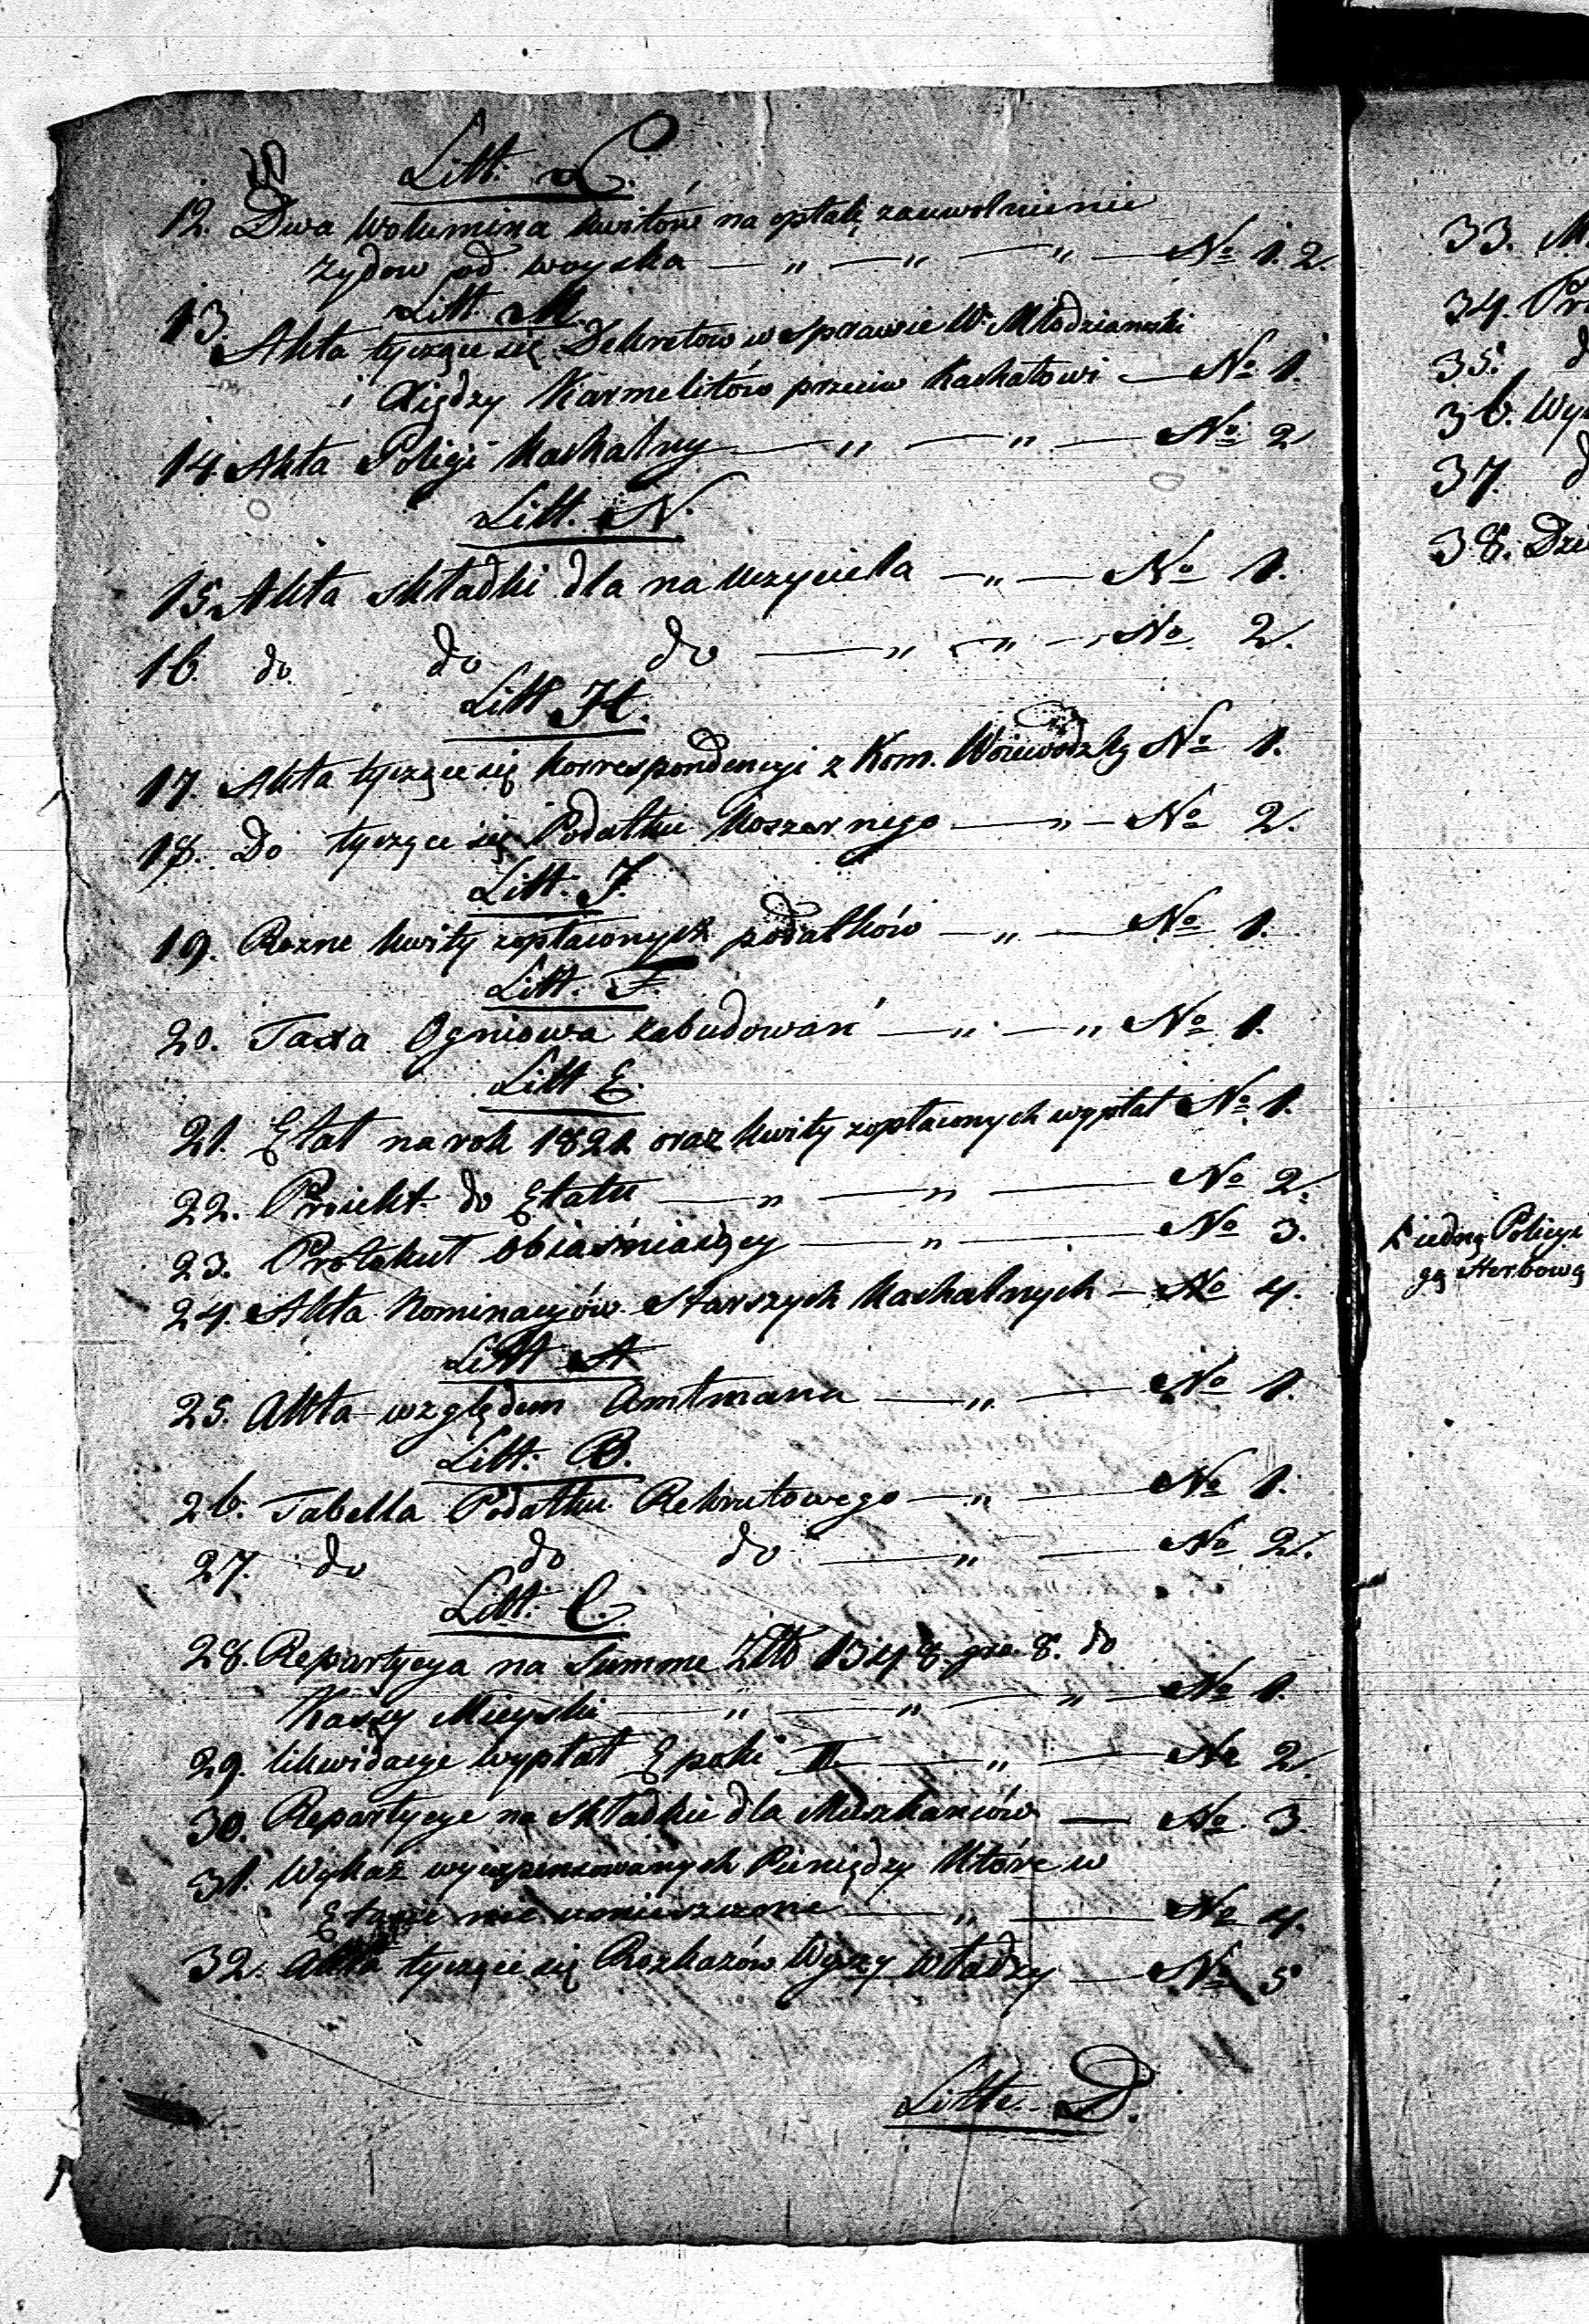 Litt. L.
12. Dwa Wolumina kwitów na opłatę zauwolnienie
Żydow od woyska — „ — „ — „ — No 1. 2.
Litt. M.
13. Akta tyczące się Dekretów w Sprawie W. Młodzianoski
i Xiędzy Karmelitów przeciw Kachałowi — No 1.
14. Akta Policyi Kachalny — „ — „ — No 2
Litt. N.
15. Akta składki dla nauczyciela — „ — No 1.
16. do do do — „ — „ — No 2.
Litt. H.
17. Akta tyczące się korrespondencyi z Kom. Woiewodzką No 1.
18. Do tyczące się Podatku Koszarnego — „ — No 2.
Litt. J.
19. Rozne kwity zopłaconych podatków — „ — No 1.
Litt. F.
20. Taxa Ogniowa zabudowań — „ — „ No 1.
Litt. E.
21. Etat na rok 1821 oraz kwity zopłaconych wypłat No 1.
22. Proiekt do Etatu — „ — „ — No 2.
23. Protokuł obiaśniaiący — „ — No 3.
24. Akta Nominacyów Starszych Kachalnych — No 4.
Litt A
25. Akta względem Amtmana — „ — No 1.
Litt. B.
26. Tabella Podatku Rekrutowego — „ — No 1.
27. do do do — „ — No 2.
Litt. C.
28. Repartycya na Summe Złtt 1348 gro. 8. do
Kassy Mieyski — „ — „ — „ — No 1.
29. likwidacye wypłat Epoki II — „ — No 2.
30. Repartycye na składkie dla Mieszkańców — No 3
31. Wykaz wyexpensowanych Pieniędzy które w
Etacie nie umieszczone — „ — No 4.
32. Akta tyczące się Rozkazów Wyszy Władzy — No 5
Litt. D.
33. M
34. Pr
35. d
36. Wy
37. d
38. Dzi
Policyi
Herbową